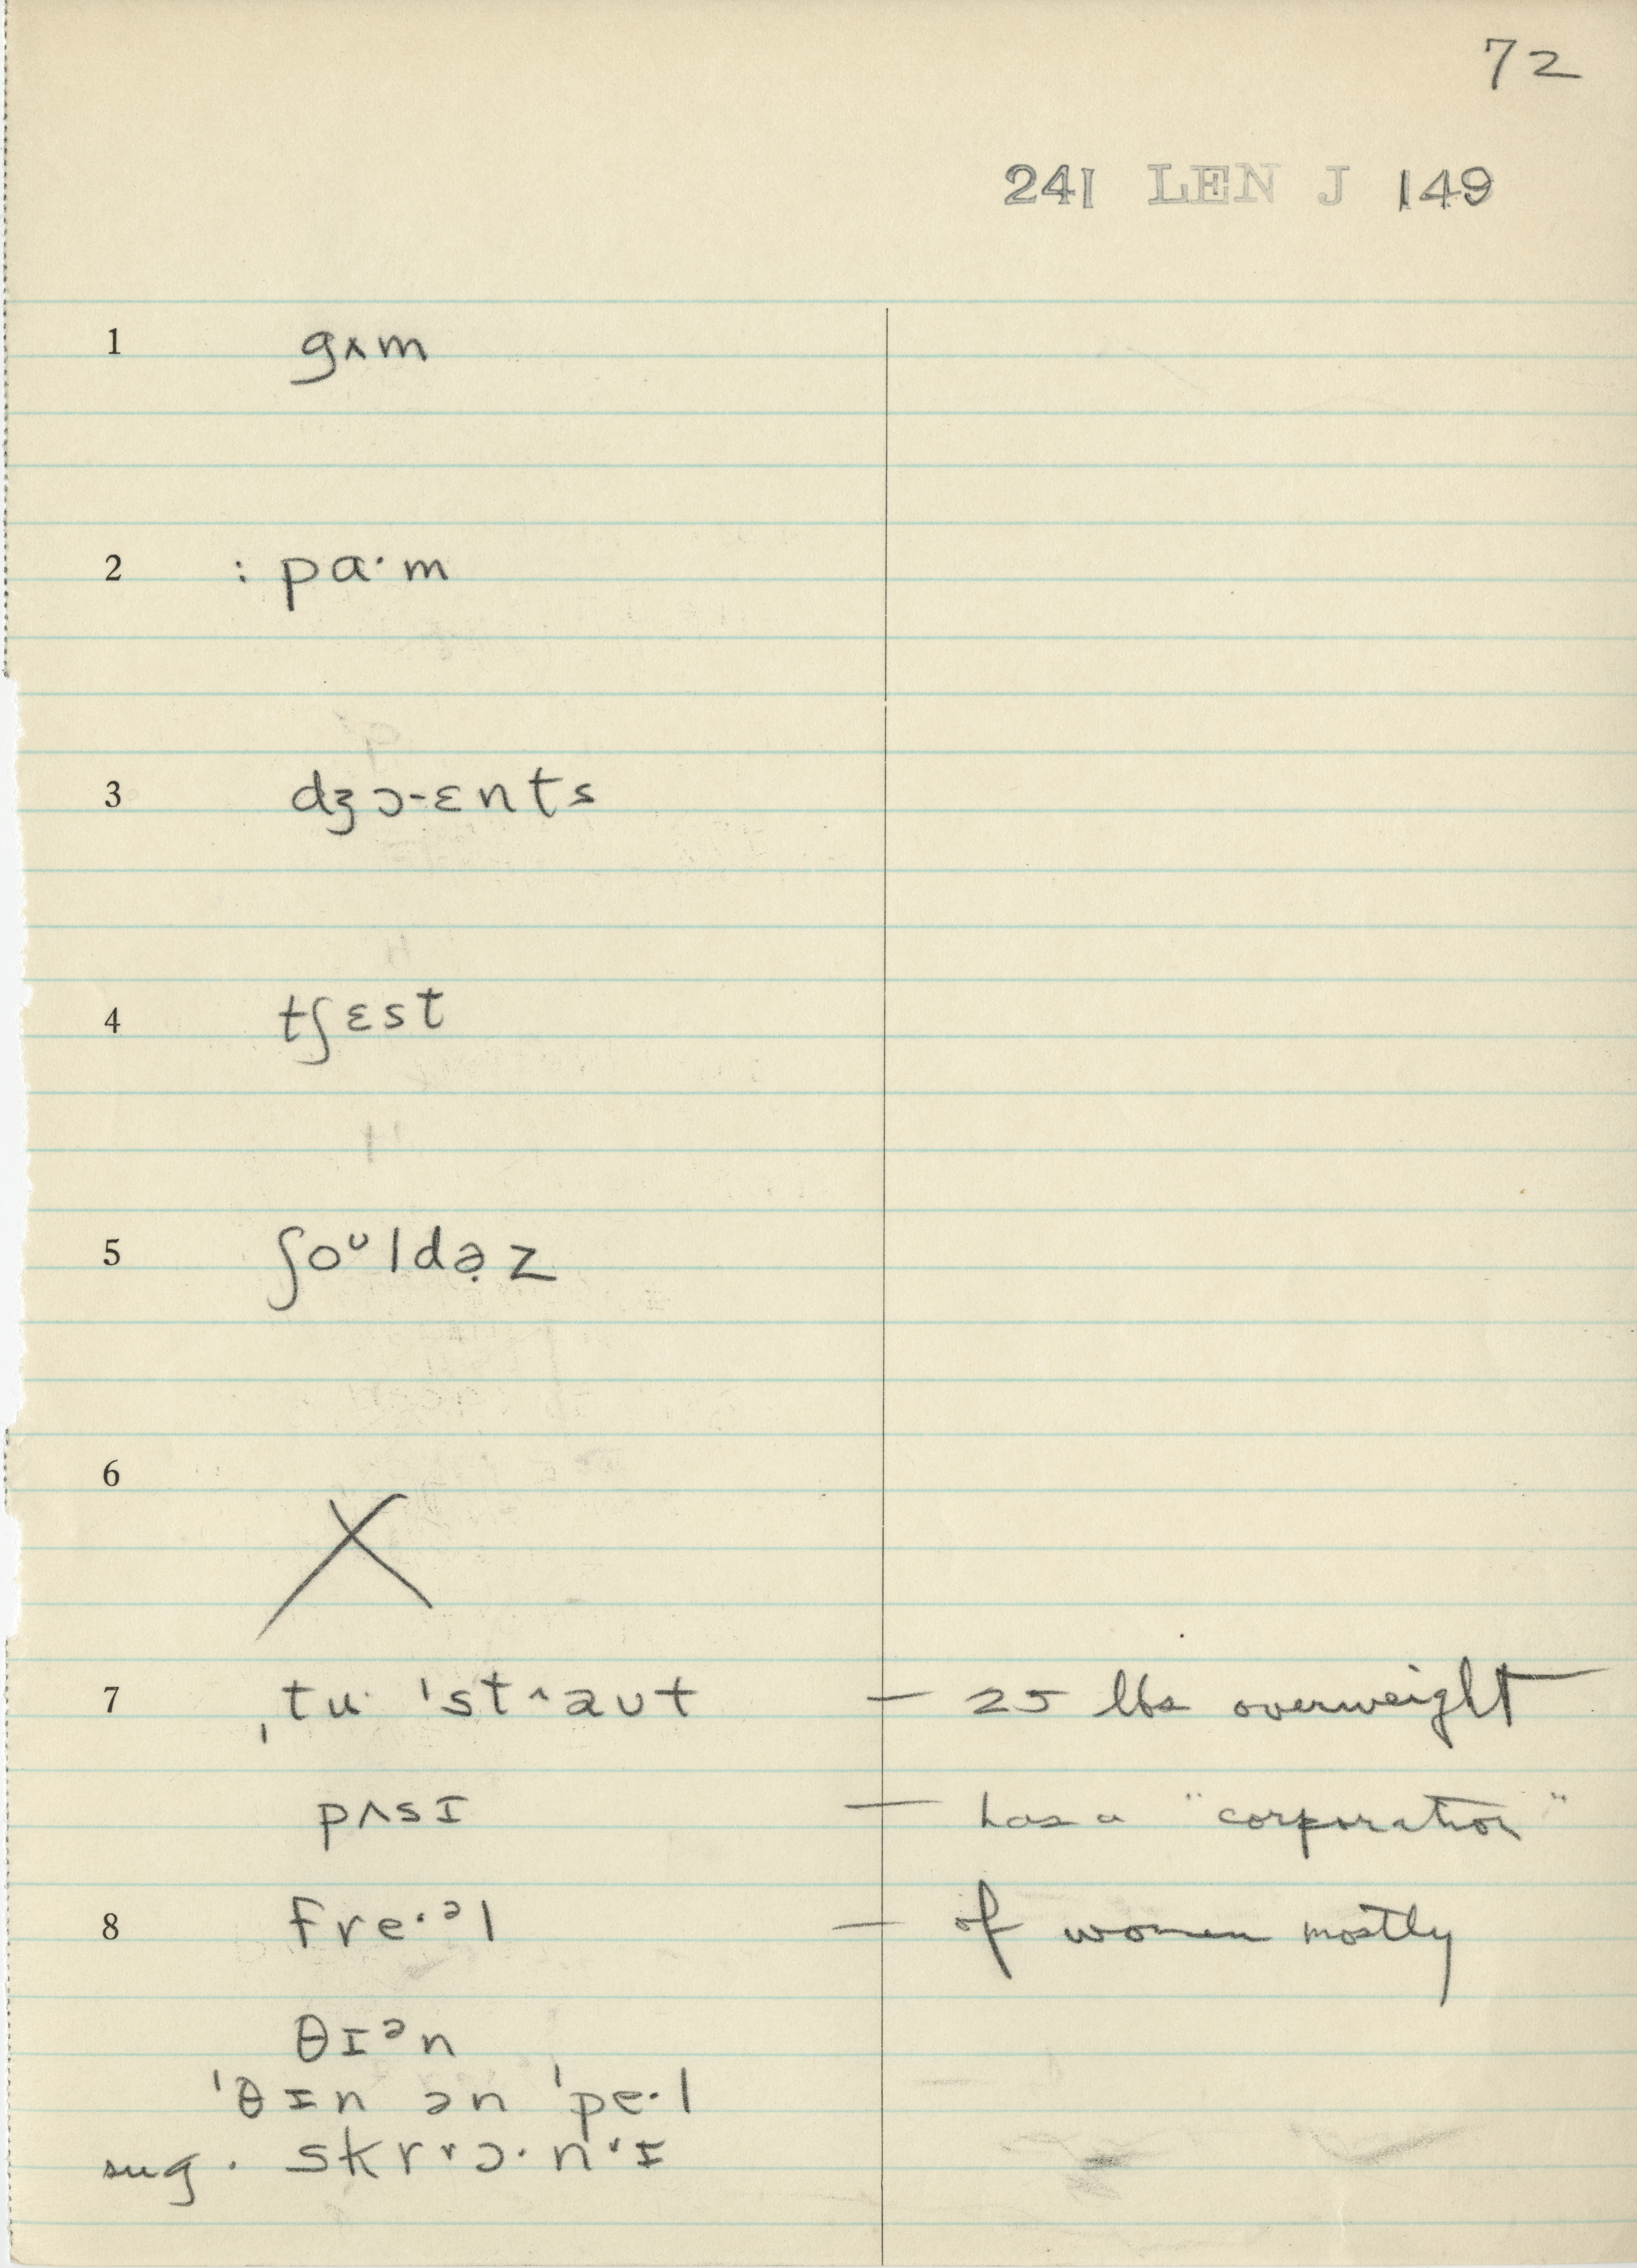 72
241 LEN J 149
1 gʌm
2 : pɑ·m
3 dʒɔ-ɛnts
4 tʃɛst
5 ʃoᶷldə̣z
6 X
7 ˌtu· ˈst^aʊt — 25 lbs overweight
pʌsɪ — has a "corporation"
8 fre·ᵊl — of women mostly
θɪᵊn
ˈθɪn ən ˈpe·l
sug. skrᵛɔ·nᵛɪ